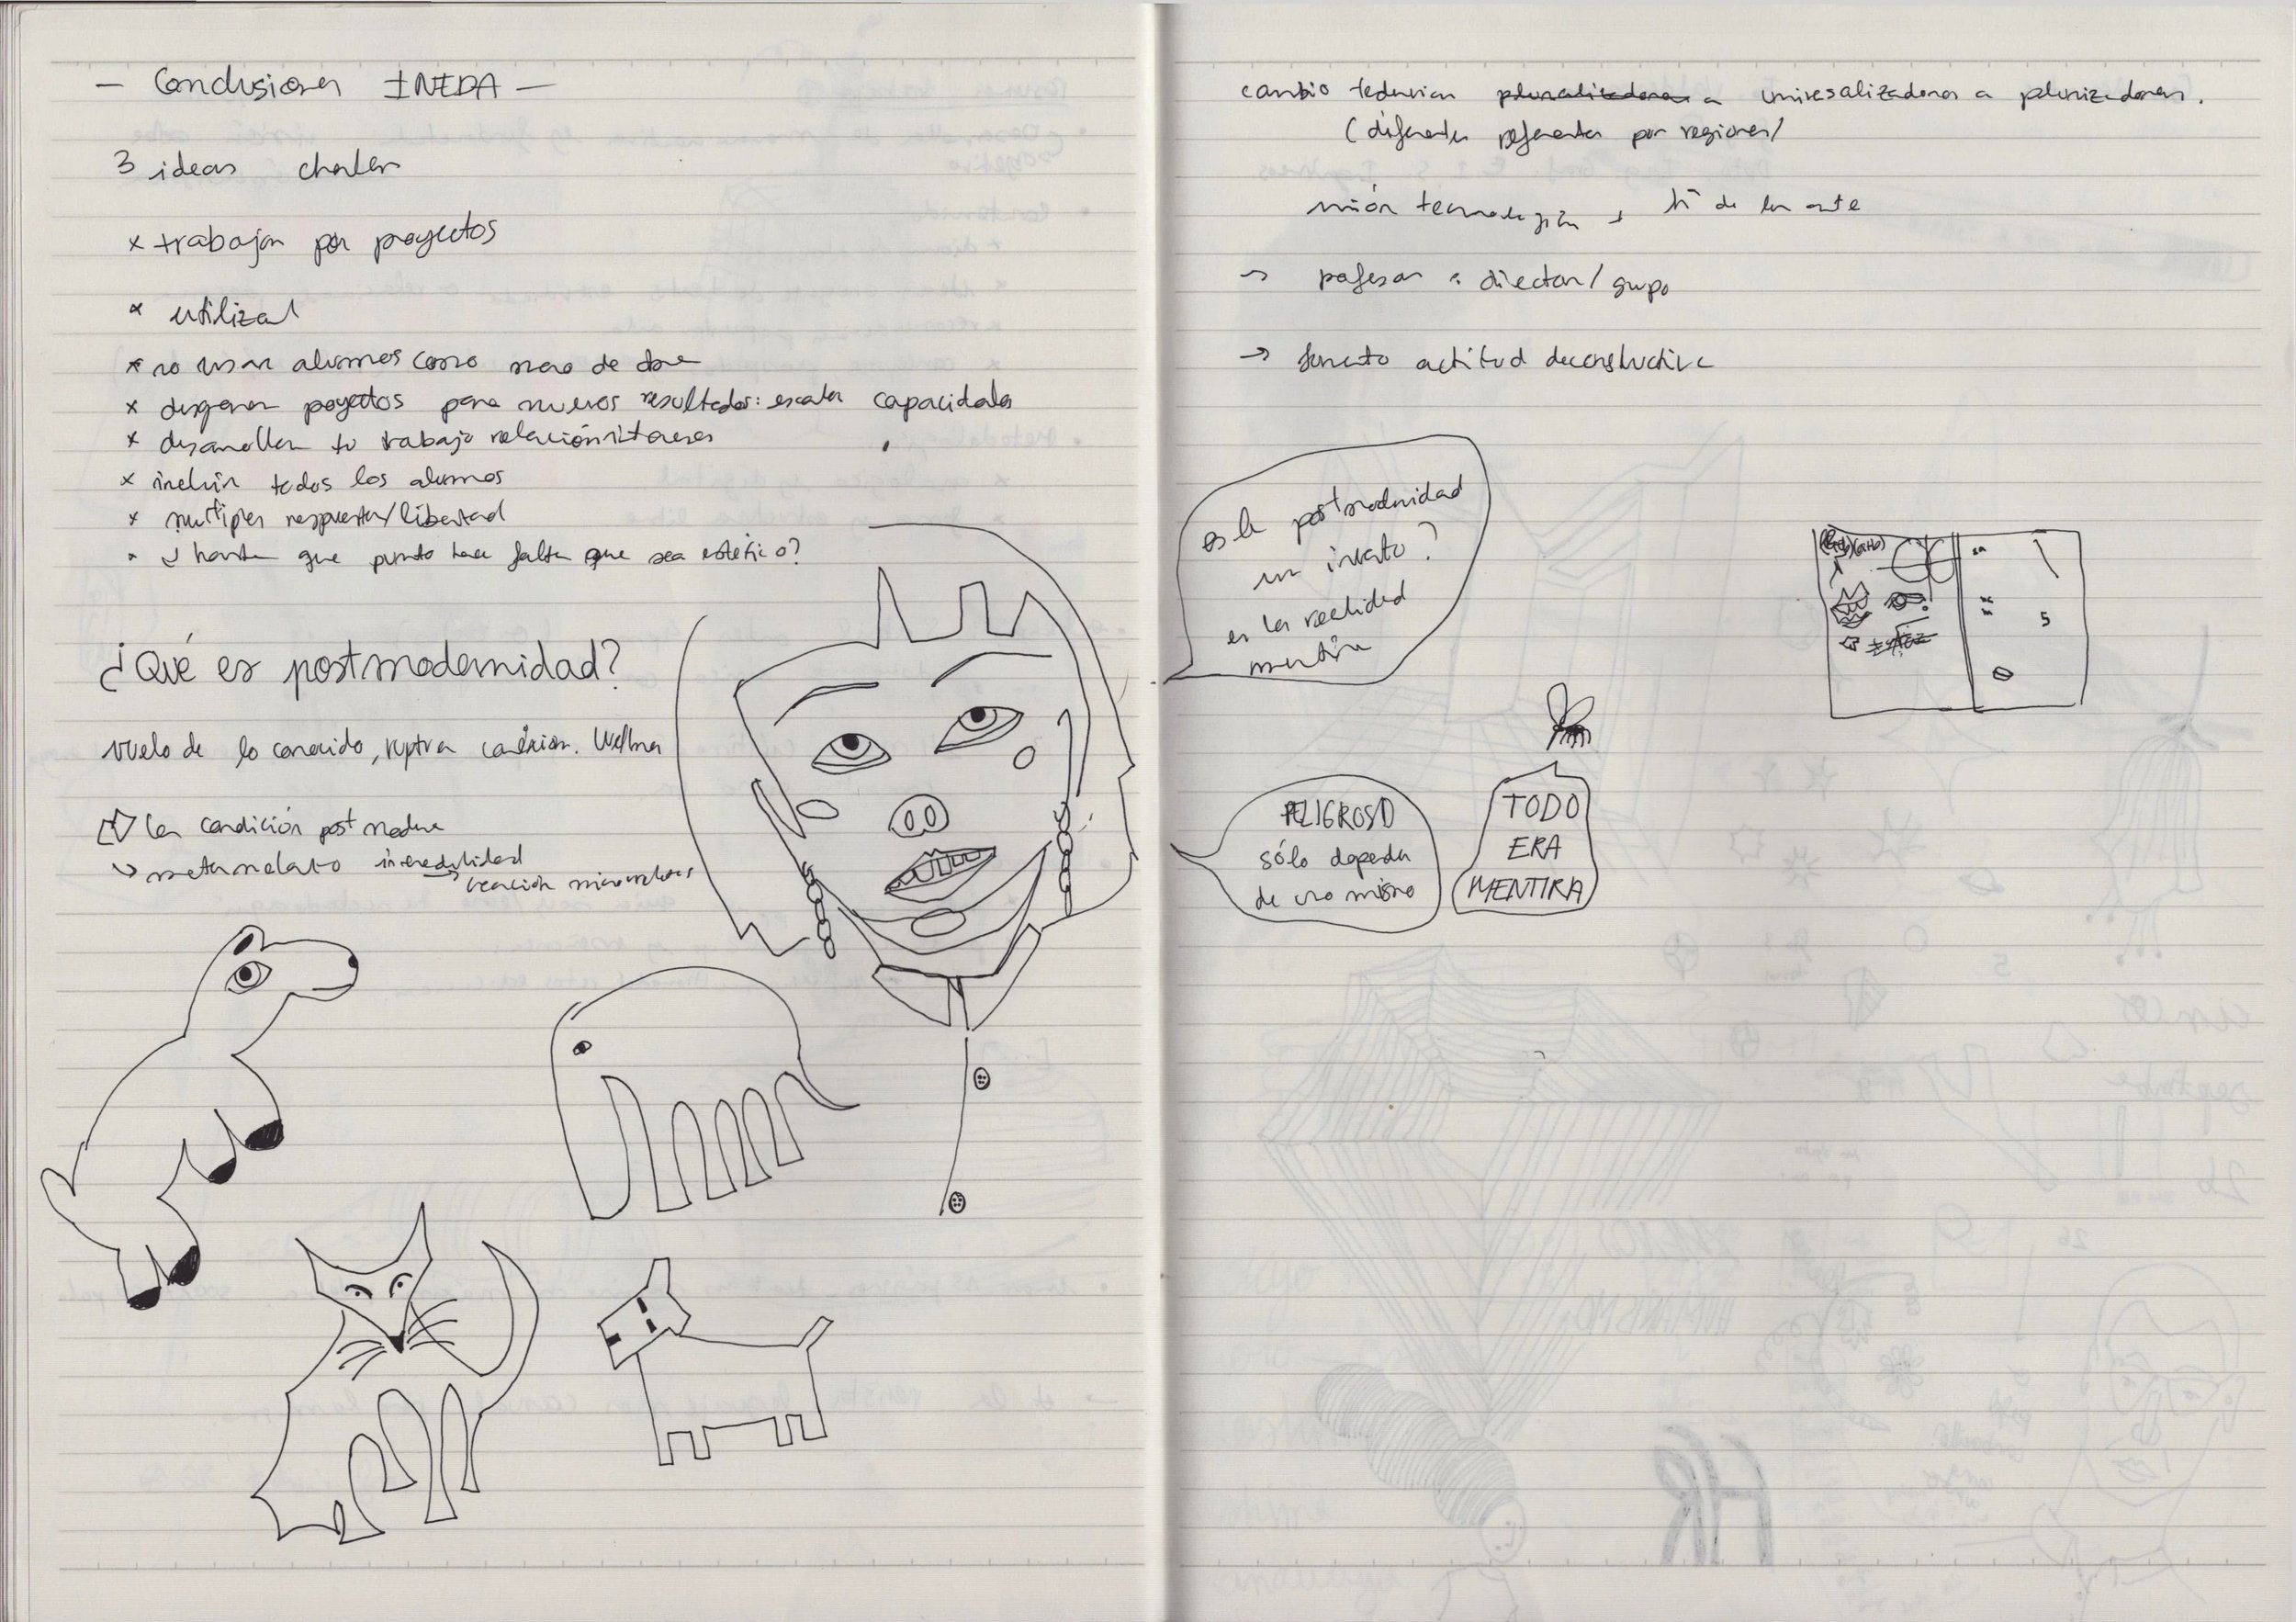 – Conclusiones INEDA –
3 ideas charlas
x trabajar por proyectos
x utilizar
x no usar alumnos como mano de obra
x proyectos para nuevos resultados: capacidades
x desarrollar tu trabajo relación intereses
x incluir todos los alumnos
x múltiples respuestas/libertad
hasta que punto hace falta que sea estético?
¿Qué es postmodernidad?
vuelo de lo conocido, ruptura
la condición postmoderna
↳ metarrelato incredulidad
→ creación microrrelatos
cambio a universalizadoras a
(diferentes referentes por regiones)
unión tecnología + de la arte
→ profesor director/grupo
→ fomento actitud deconstructiva
es la postmodernidad
un invento?
es la realidad
mentira
TODO
ERA
MENTIRA
PELIGROSO
sólo
de uno mismo
5